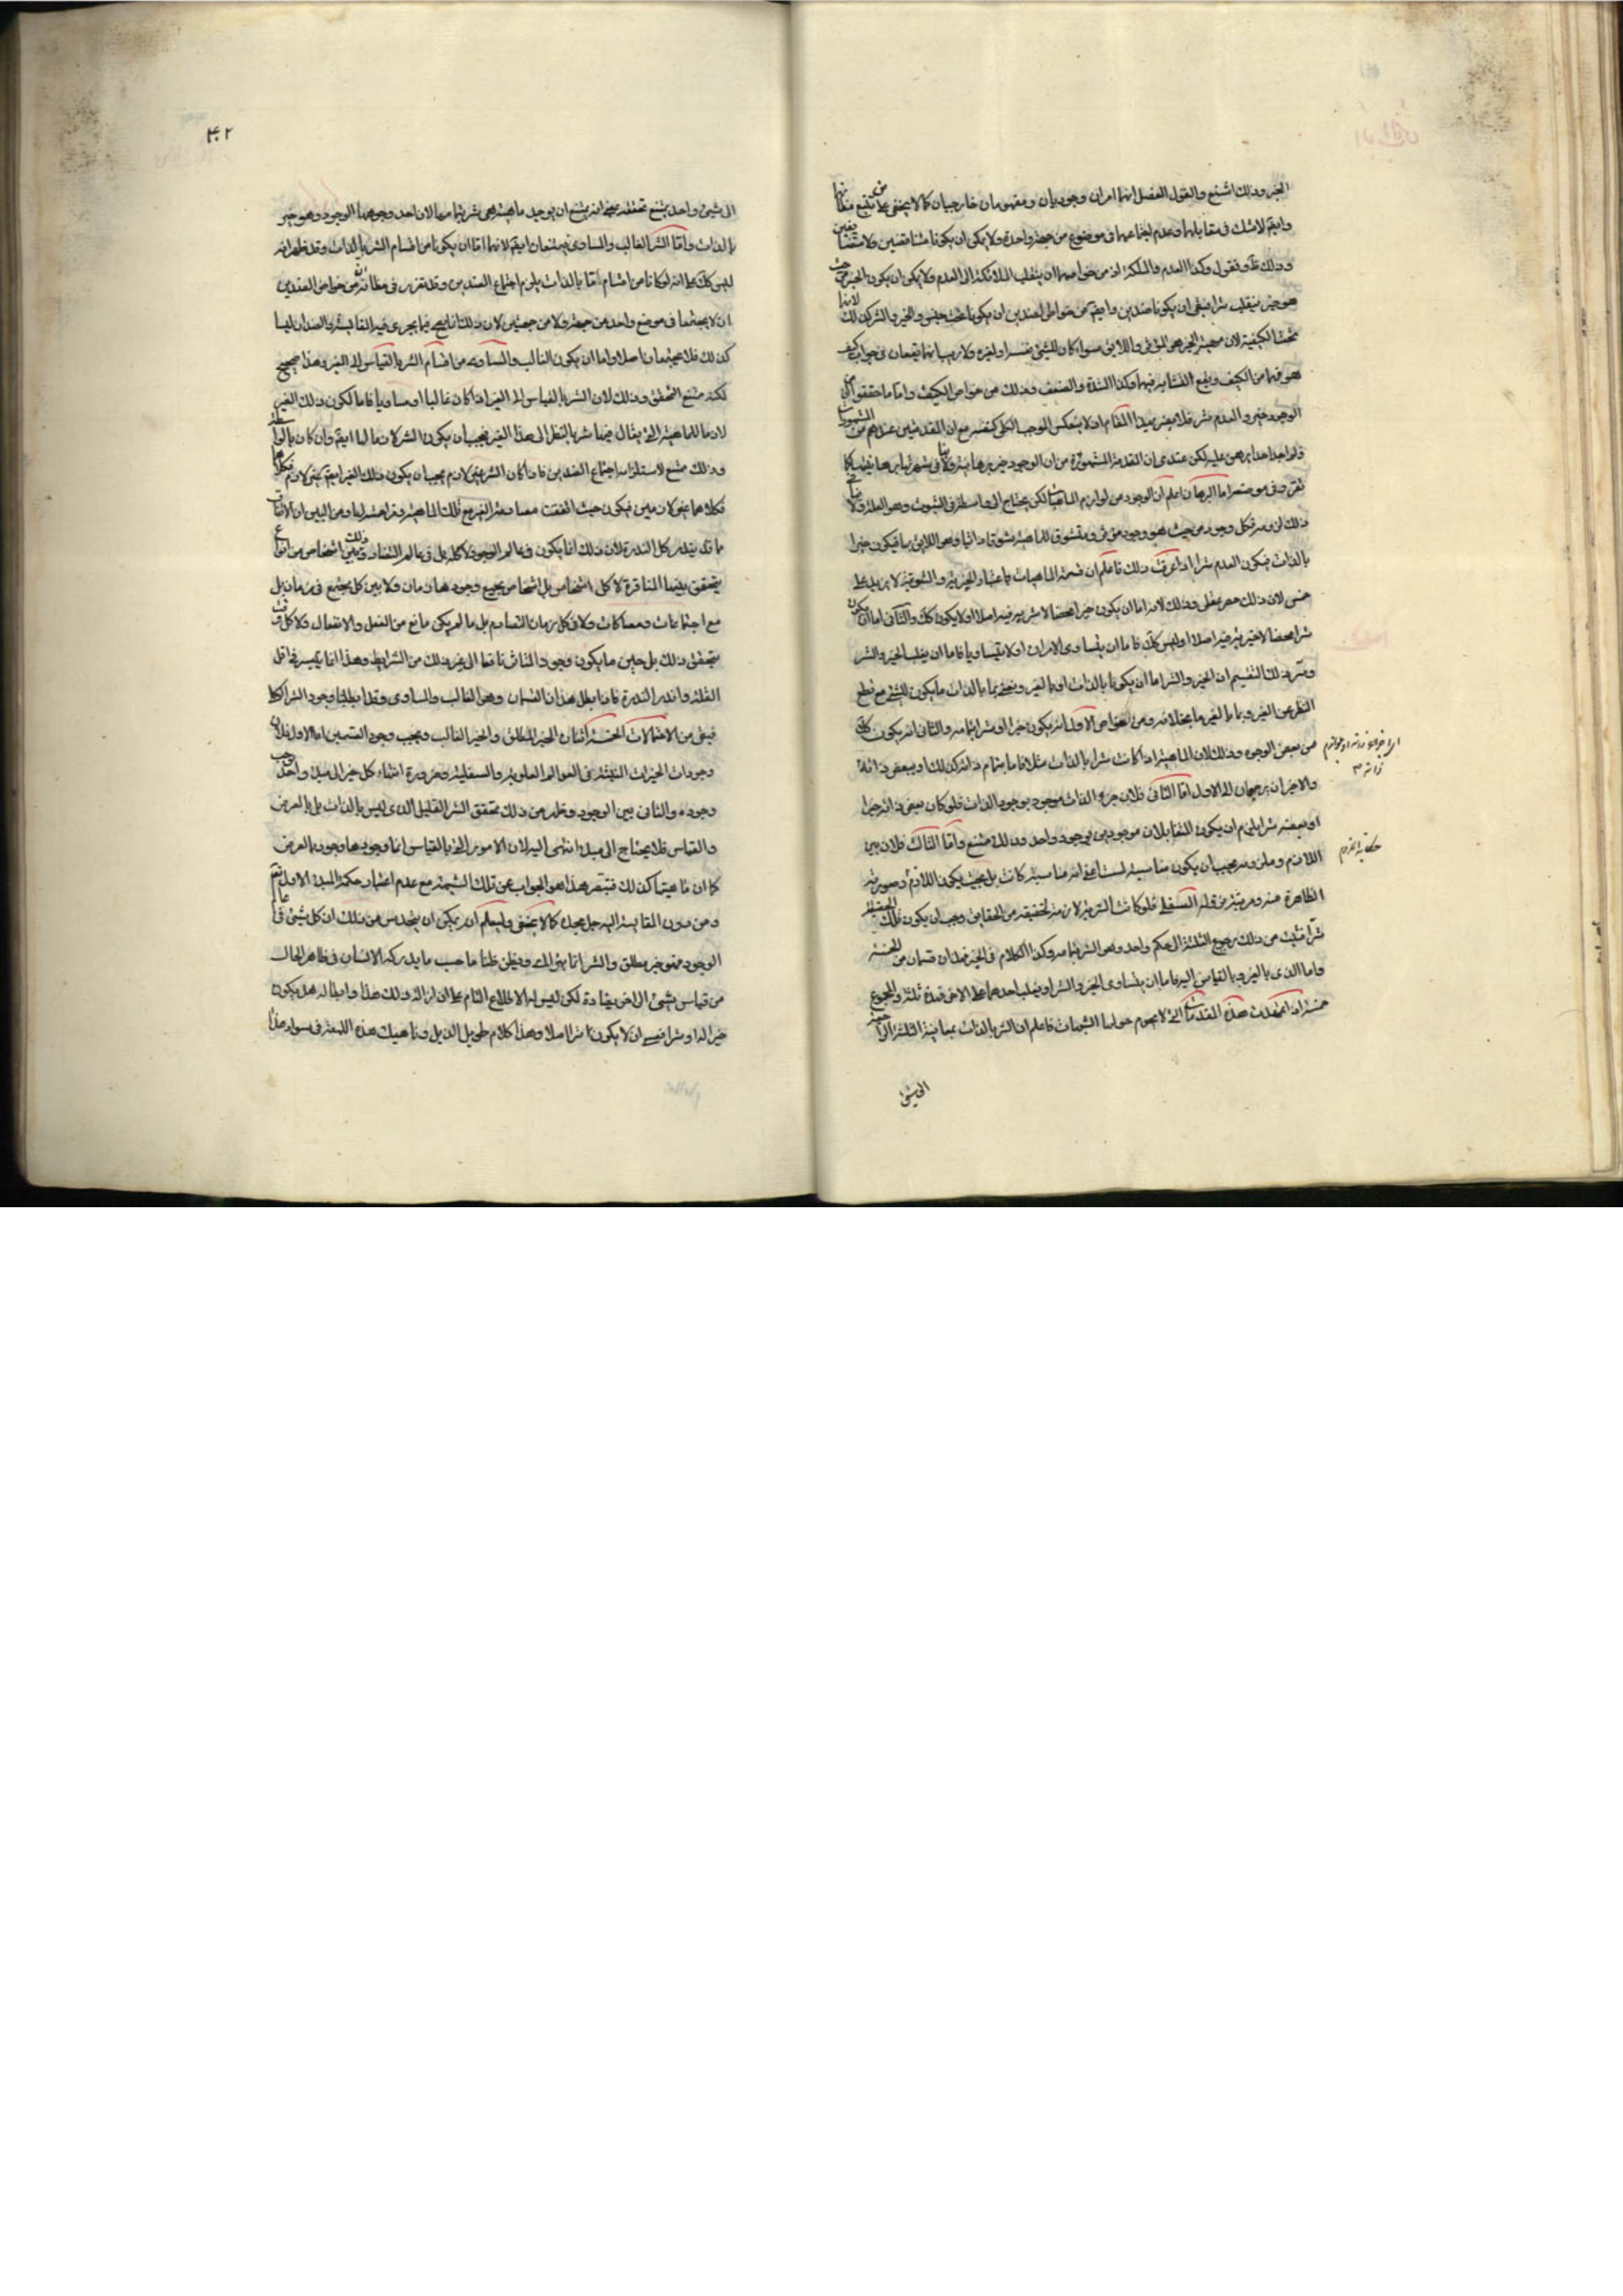 الخير وذلك اشنع والقول الفصل انهما امران وجوديان ومفهومان خارجيان كما لا يخفى على من تتبع مظانهما
وايضا لا شك في تقابلهما وعدم اجتماعهما في موضوع من جهة واحدة ولا يمكن ان يكونا متناقضين ولا متضايفين
وذلك ظ ونقول وكذا العدم والملكة اذ من خواصهما ان ينقلب الملكة الى العدم ولا يمكن ان يكون الخير من حيث
هو خير ينقلب شرا فبقى ان يكونا ضدين وايضا من خواص الضدين ان يكونا تحت جنس والخير والشر كذلك لانهما
تحت الكيفية لان الخير هي المؤثر واللايق سواء كان للشيء نفسه او لغيره ولا ريب انهما يقعان في جواب كيف
هو فهما من الكيف ويقع التشابه فيهما وكذا الشدة والضعف وذلك من خواص الكيف واما ما حققوا من ان
الوجود خير والعدم شر فلا يضر بهذا المقام اذ لا ينعكس الموجب الكلي كنفسه مع ان المقدمتين عندهم من المشهورات
فلم اجد احدا برهن عليه لكن عندي ان المقدمة المشهورة من ان الوجود خير برهانية
تقرر في موضعه اما البرهان اعلم ان الوجود من لوازم الماهية لكن يحتاج الى واسطة في الثبوت وهو العلة
ذلك لزومه فكل وجود من حيث هو وجود مؤثر ومتشوق للماهية تشوقا ذاتيا وهو اللايق بها فيكون خيرا
بالذات فيكون العدم شرا اذا عرفت ذلك فاعلم ان قسمة الماهيات باعتبار الخيرية والشرية لا يزيد على
خمس لان ذلك حصر عقلي وذلك لانه اما ان يكون خيرا محضا لا شرية فيه اصلا او لا يكون كك والثاني اما ان يكون
شرا محضا لا خيرية فيه اصلا او ليس كك فاما ان يتساوى الامران او لا يتساويا فاما ان يغلب الخير والشر
وسر ذلك التقسيم ان الخير والشر اما ان يكونا بالذات او بالغير ونعني بما بالذات ما يكون للشيء مع قطع
النظر عن الغير وبما بالغير ما بخلافه ومن خواص الاول انه يكون خيرا او شرا بتمامه والثاني انه يكون
من بعض الوجوه وذلك لان الماهية اذا كانت شرا بالذات مثلا فاما بتمام ذاته كذلك او ببعض ذاته
والاخيران يرجعان الى الاول اما الثاني فلان جزء الذات موجود بوجود الذات فلو كان بعض ذاته خيرا
او بعضه شرا يلزم ان يكون المتقابلان موجودين بوجود واحد وذلك ممتنع واما الثالث فلان بين
اللازم وملزومه يجب ان يكون مناسبة لست اعني انه مناسبة كانت بل بحيث يكون اللازم وصورته
الظاهرة منه ومرتبة من قلة السفلى فلو كانت الشرية لازمة لحقيقة من الحقايق وجب ان يكون تلك الحقيقة
شرا فثبت من ذلك رجوع الثلثة الى حكم واحد وهو الشر بتمامه وكذا الكلام في الخير فهذان قسمان من الخمسة
واما الذي بالغير وبالقياس اليه فاما ان يتساوى الخير والشر او يغلب احدهما على الاخر فهذه ثلثة والمجموع
خمسة اذا تمهدت هذه المقدمات التي لا يحوم حولها الشبهات فاعلم ان الشر بالذات بمعانيه الثلثة الراجعة
الى شيء
٣٠٢
الى شيء واحد يمتنع تحققه بمعنى انه يمتنع ان يوجد ماهية هي شر بتمامها لان احد وجوهها الوجود وهو خير
بالذات واما الشر الغالب والمساوي فيمتنعان ايضا لانهما اما ان يكونا من اقسام الشر بالذات وقد ظهر انه
ليس كك على انه لو كانا من اقسام ما بالذات يلزم اجتماع الضدين وقد تقرر في مظانه ان من خواص الضدين
ان لا يجتمعا في موضع واحد من جهة ولا من جهتين لان ذلك انما يصح فيما يجري فيه المقايسة والضدان ليسا
كذلك فلا يجتمعان اصلا واما ان يكون الغالب والمساوي من اقسام الشر بالقياس الى الغير وهذا صحيح
لكنه ممتنع التحقق وذلك لان الشر بالقياس الى الغير اذا كان غالبا او مساويا فاما لكون ذلك الغير
لازما للماهية التي يقال فيها شر بالنظر الى هذا الغير فيجب ان يكون الشر لازما لها ايضا وان كان بالواسطة
وذلك ممتنع لاستلزامه اجتماع الضدين فاذا كان الشر غير لازم يجب ان يكون ذلك الغير ايضا غير لازم
فكلاهما غير لازمين فيكون حيث اتفقت مصادفة الغير مع تلك الماهية ومزاحمته لها ومن البين ان الاتفاق
مما قد يندر كل الندرة لان ذلك انما يكون في عالم الوجود لا كله بل في عالم التضاد وذلك بين اشخاص من انواع
يتحقق بينها المنافرة لا كل اشخاص بل اشخاص يجمع وجودها زمان ولا بين كل مجتمع في زمان بل
مع اجتماعات ومصاكات ولا في كل زمان التصادم بل ما لم يكن مانع من الفعل والانفعال ولا كل وقت
يتحقق ذلك بل حين ما يكون وجود الثاني نافعا الى غير ذلك من الشرايط وهذا انما يتيسر في اقل
القلة واندر الندرة فاذا بطل هذان القسمان وهو الغالب والمساوي وقد ابطلنا وجود الشر الكل
فبقى من الاحتمالات الخمسة اثنان الخير المطلق والخير الغالب ويجب وجود القسمين اما الاول فلان
وجودات الخيرات الثلثة في العوالم العلوية والسفلية وضرورة انتهاء كل خير الى مبدء واحد وجب
وجوده والثاني بين الوجود وظهر من ذلك تحقق الشر القليل الذي ليس بالذات بل بالعرض
والقياس فلا يحتاج الى مبدء انتهى اليه لان الامور التي بالقياس انما وجودها وجود بالعرض
كما ان ماهيتها كذلك فتبصر هذا هو الجواب عن تلك الشبهة مع عدم اعتبار حكمة المبدء الاول تعالى
ومن دون المقايسة اليه جل مجده كما لا يخفى وليعلم انه يمكن ان يتحدس من ذلك ان كل شيء في عالم
الوجود فهو خير مطلق والشر انما يترائى ويظن ظنا ما حسب ما يدركه الانسان في ظاهر الحال
من قياس شيء الى اخر يضاده لكن ليس له الاطلاع التام على ان ازالة ذلك هذا وابطاله هل يكون
خيرا له او شرا فعسى ان لا يكون شرا اصلا وهذا كلام طويل الذيل وناهيك هذه اللمعة في سواد هذا